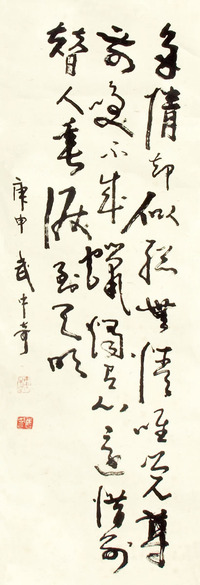 多情却似總無情唯覺尊
前笑不成蠟燭有心還惜別
替人垂淚到天明
庚申 武中奇